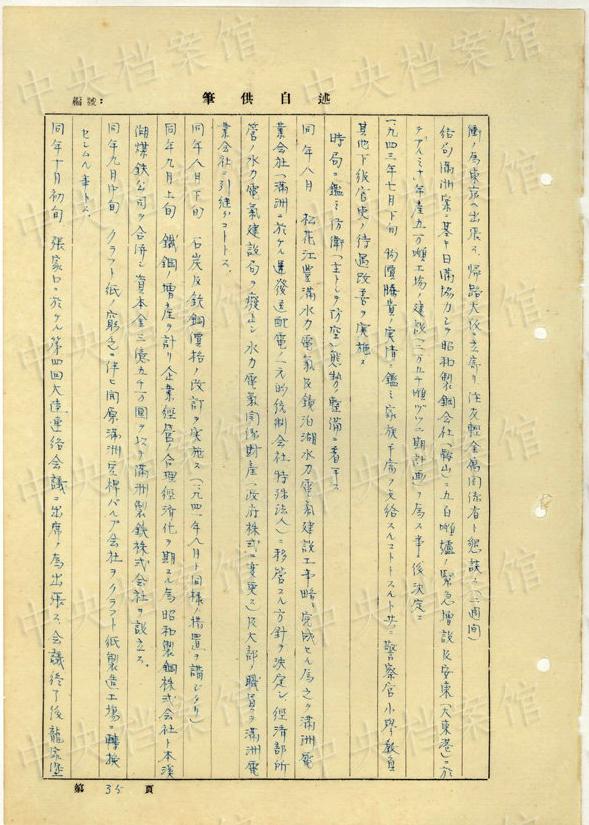 編號：
筆供自述
衝ノ為東京ヘ出張ス、帰路大阪ニ立寄リ住友軽金属関係者ト懇談ス（二週間）
結局満洲案ニ基キ日満協力シテ昭和製鋼会社（鞍山）ニ五百噸爐ノ緊急増設及安東（大東港）ニ於
テアルミ
一九四三年七月下旬 物價騰貴ノ実情ニ鑑ミ家族手當ヲ支給スルコトトスルト共ニ警察官小學教員
其他下級官吏ノ待遇改善ヲ実施ス
時局ニ鑑ミ防衛（主トシテ防空）態勢ノ整備ニ着手ス
同年八月 松花江豊満水力電氣及鏡泊湖水力電氣建設工事略、完成セル為之ヲ満洲電
業会社（満洲ニ於ケル送發送配電ノ一元的統制会社 特殊法人）ニ移管スル方針ヲ決定シ経済部所
管ノ水力電氣建設局ヲ廢止シ水力電氣関係財産（政府株式ニ変更ス）及大部ノ職員ヲ満洲電
業会社ニ引継グコトトス
同年八月下旬 石炭及銑鋼價格ノ改訂ヲ実施ス（一九四一年八月ト同様ノ措置ヲ講ジタリ）
同年九月上旬 鐵鋼増産ヲ計リ企業経営ノ合理経済化ヲ期スル為昭和製鋼株式会社ト本溪
湖煤鉄公司ヲ合併シ資本金
満洲製鉄株式会社ヲ設立ス。
同年九月中旬 クラフト紙ノ窮乏ニ伴ヒ開原満洲豆稈パルプ会社ヲクラフト紙製造工場ニ轉換
セシムル事トス
同年十月初旬 張家口ニ於ケル第四回大陸連絡会議ニ出席ノ為出張ス、会議終了後龍
第 35 頁
中央档案馆